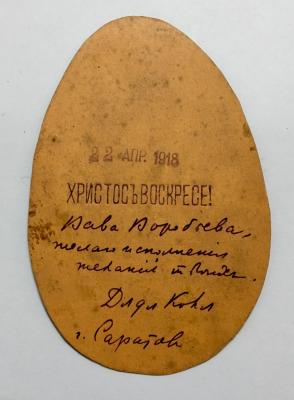 22 АПР. 1918
ХРИСТОСЪ ВОСКРЕСЕ!
Вава Воробьева,
желаю исполнения
желаний
Дядя Коля
г. Саратов